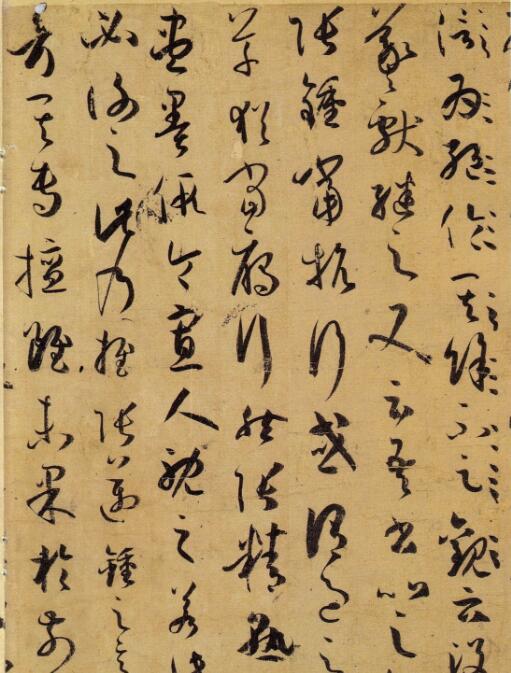 信為絕倫其餘不足觀云沒
羲獻繼之又云吾書比之
張鍾當抗行或謂過之
草猶當雁行然張精熟
盡墨假令寡人耽之若此
必謝之此乃推張邁鍾之意
考其專擅雖未果於前